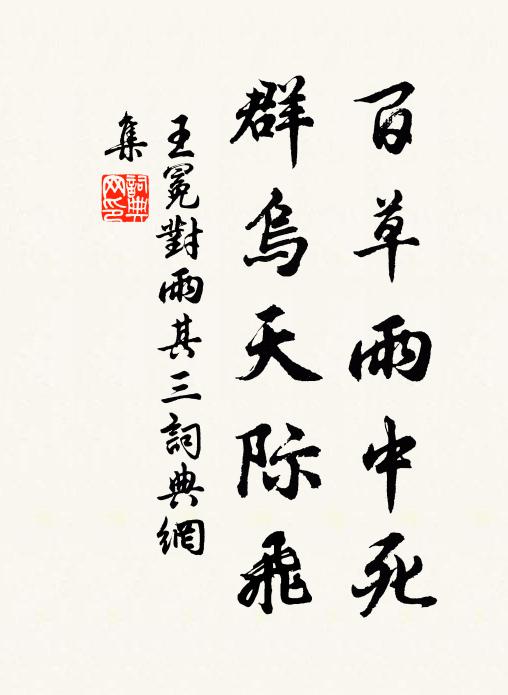 百草雨中死
群烏天际飛
王冕對雨其三詞典網
集
詞典網印